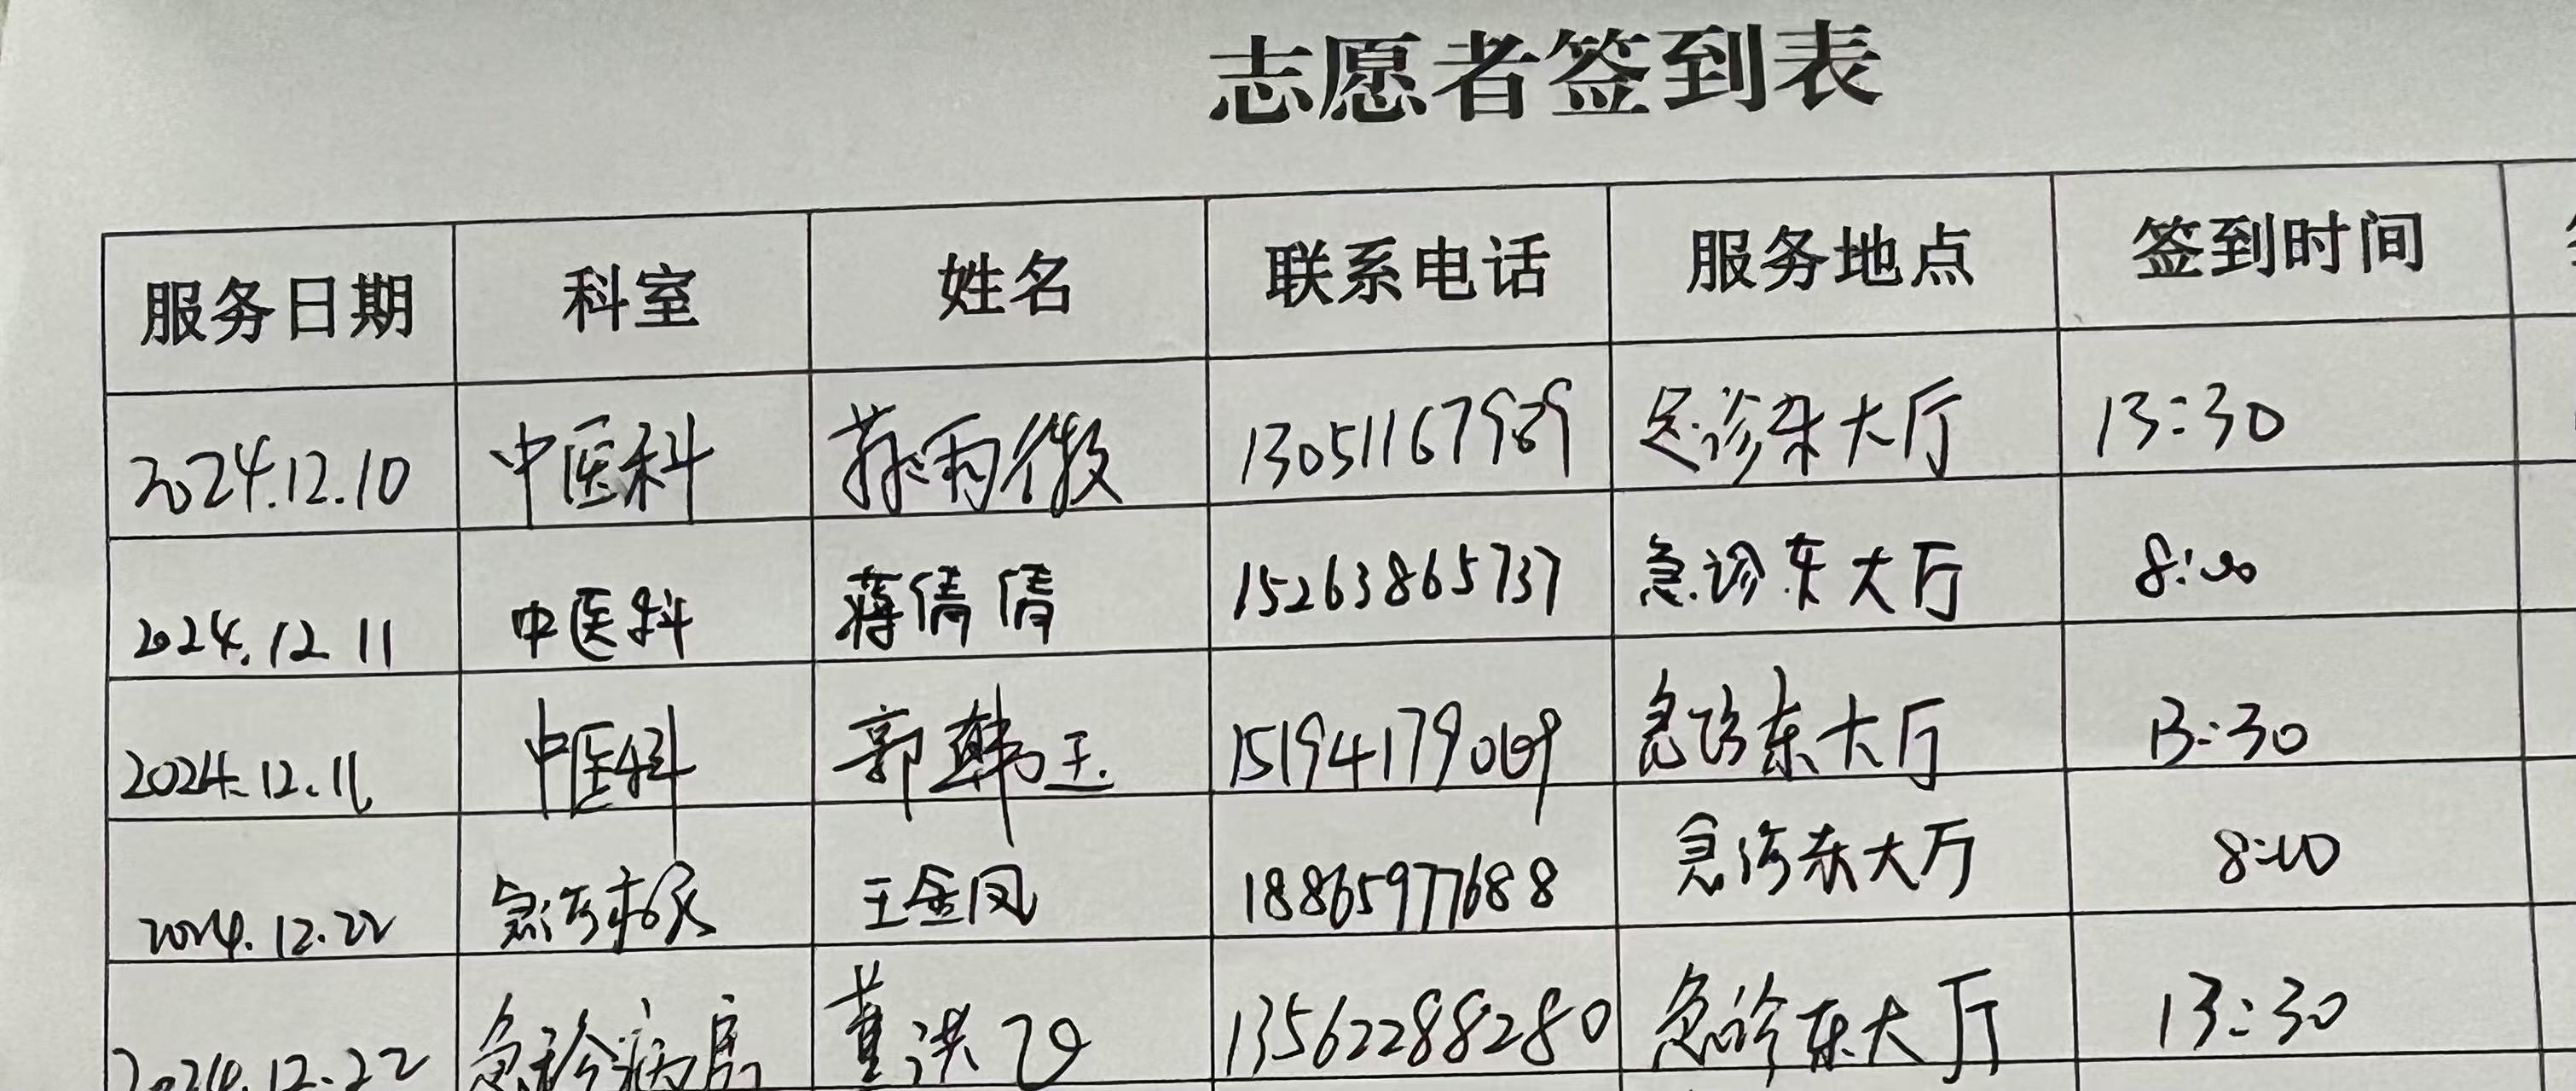 志愿者签到表
服务日期 科室 姓名 联系电话 服务地点 签到时间
2024.12.10 中医科 雨微 13051167989 急诊东大厅 13:30
2024.12.11 中医科 蒋倩倩 15263865737 急诊东大厅 8:00
2024.12.11 中医科 郭韩玉 15194179069 急诊东大厅 13:30
2024.12.22 急诊 王金凤 18865977688 急诊东大厅 8:00
2024.12.22 急诊病房 董洪 13562288280 急诊东大厅 13:30